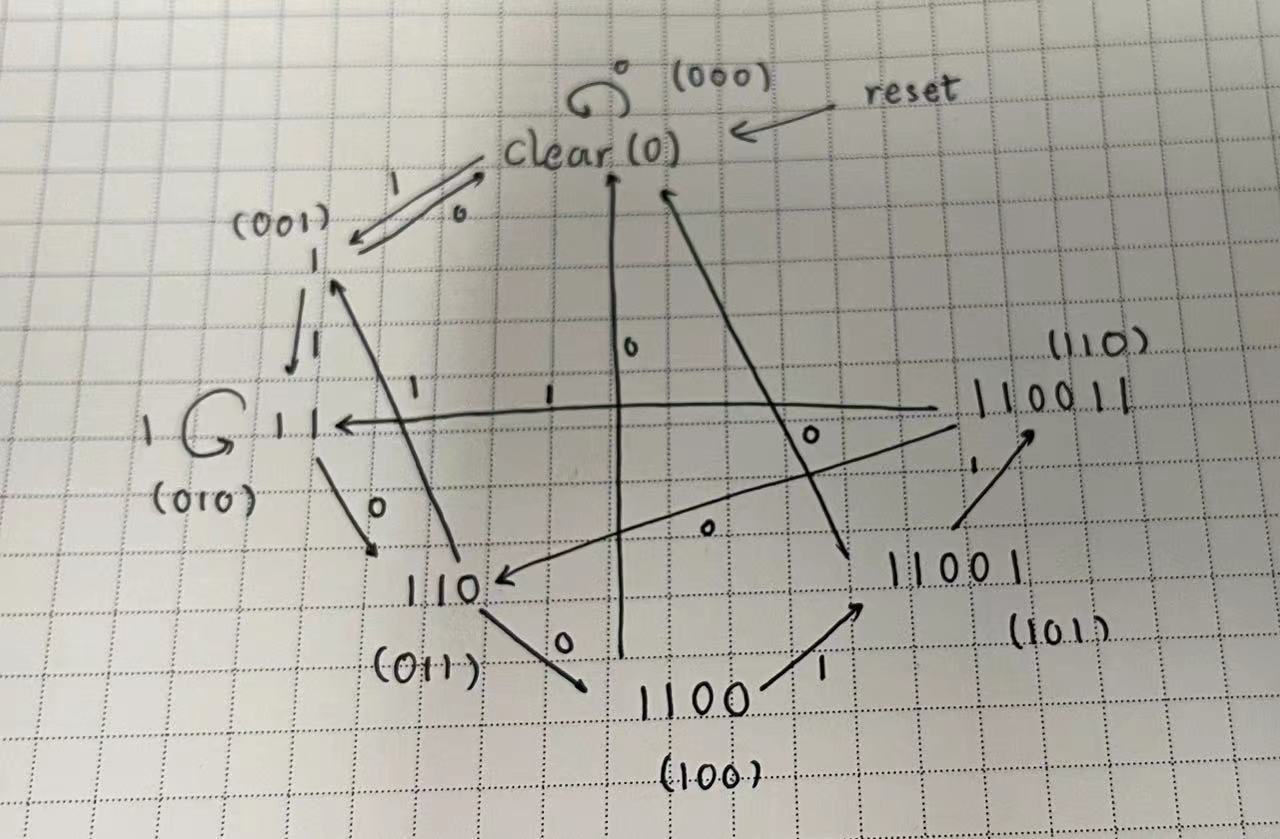 0 (000) reset
clear (0)
1
0
(001)
1
1
0
(110)
1 1 110011
1 11
0
1
(010) 0
0
110 11001
(101)
0
(011) 1
1100
(100)